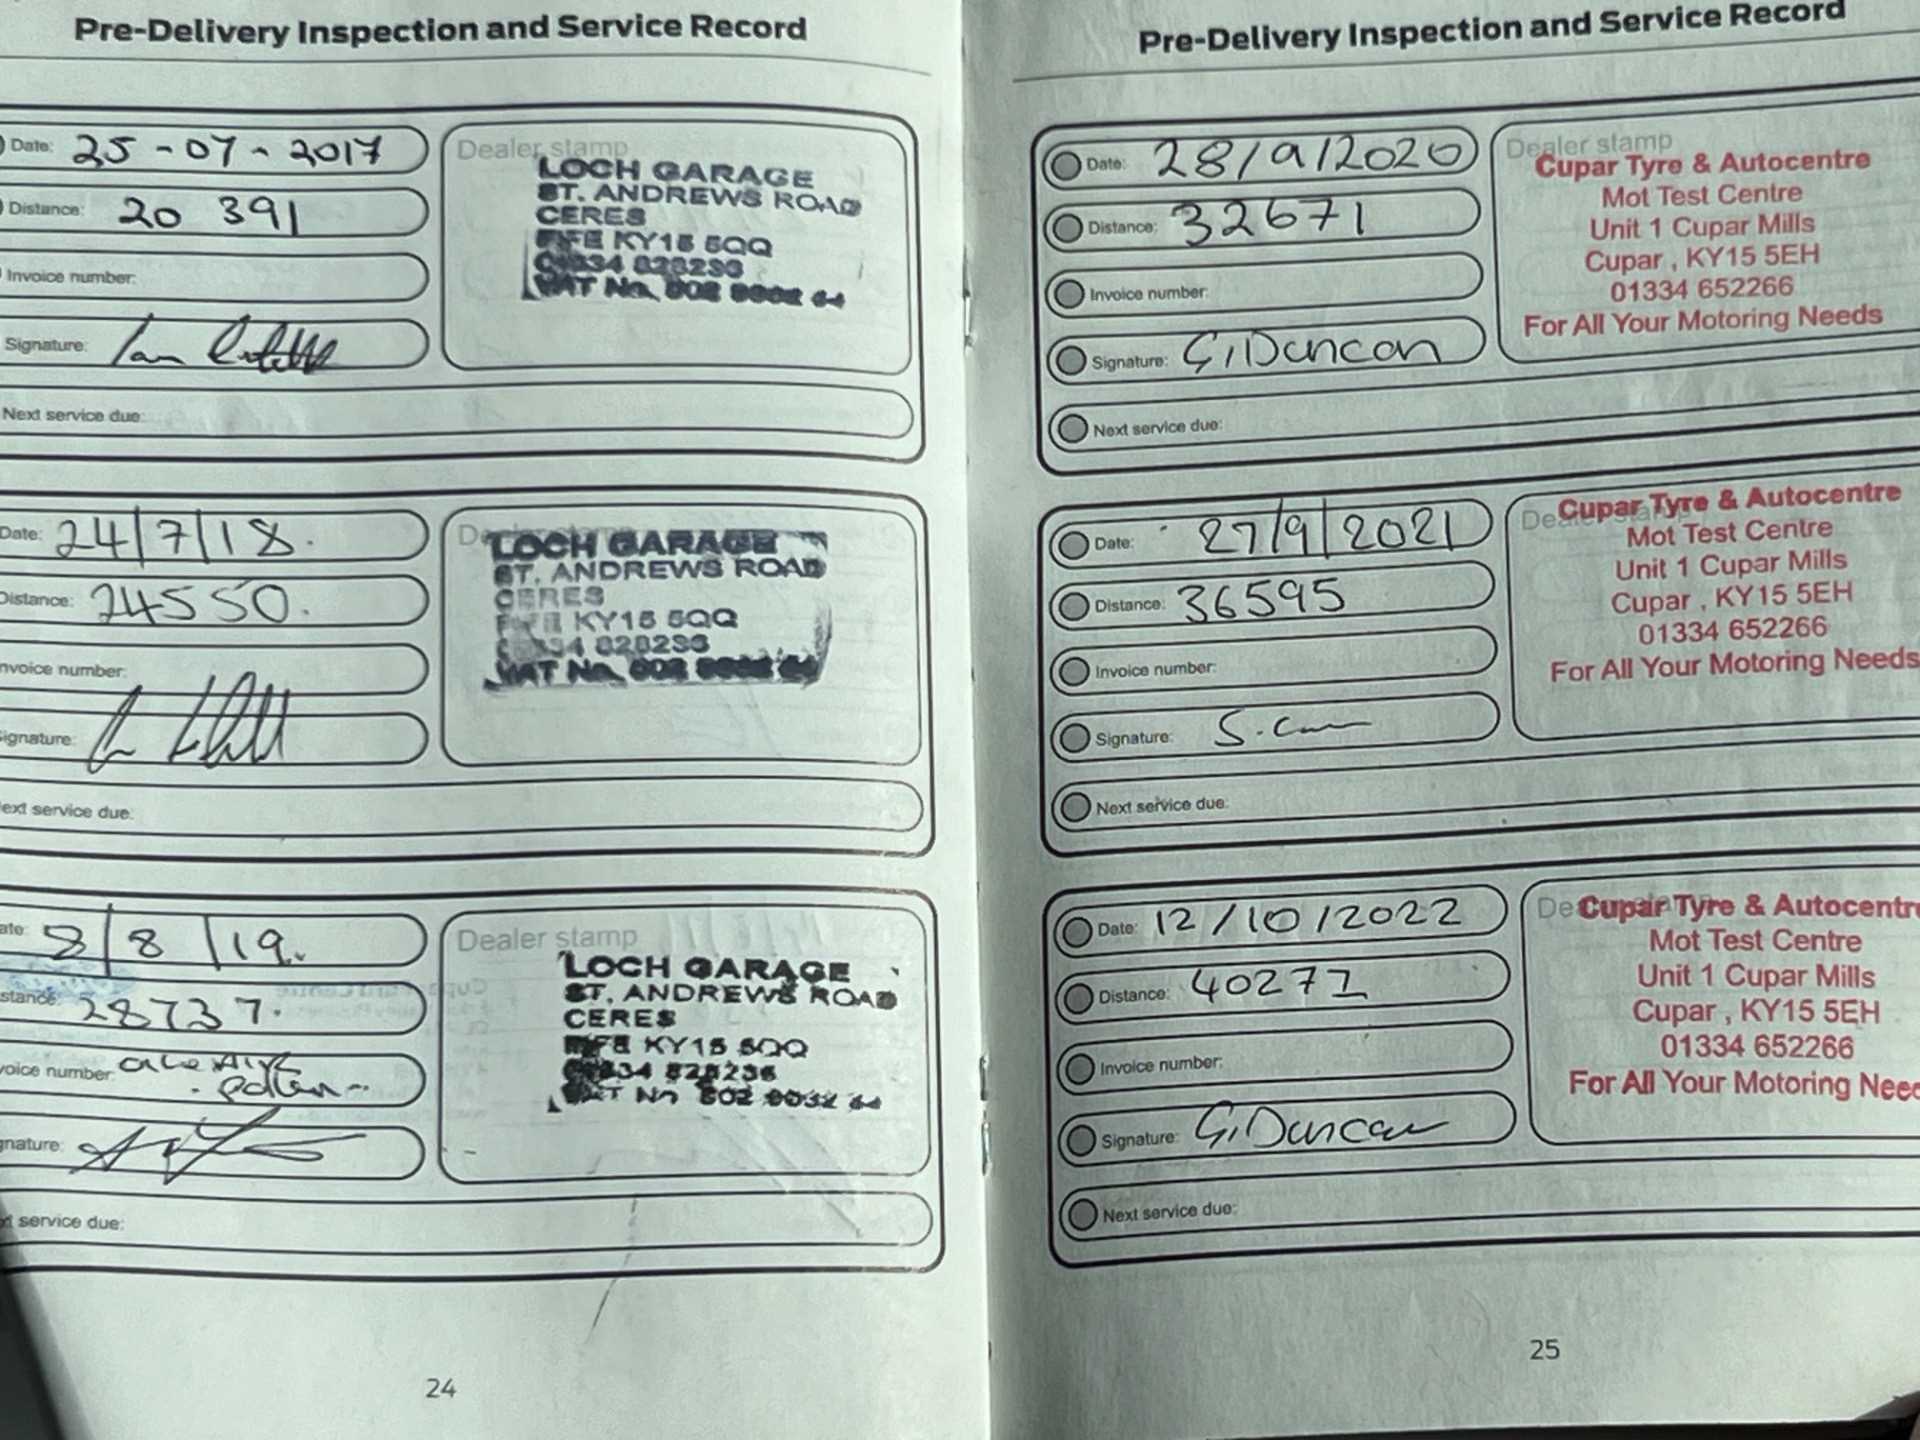 Pre-Delivery Inspection and Service Record
Date: 25-07-2017
Distance: 20 391
Invoice number:
Signature: Ian
Next service due:
Dealer stamp
LOCH GARAGE
ST. ANDREWS ROAD
CERES
FIFE KY15 5QQ
01334 828236
VAT No. 802
Date: 24/7/18.
Distance: 24550.
nvoice number:
ignature:
ext service due:
LOCH GARAGE
ST. ANDREWS ROAD
CERES
FIFE KY15 5QQ
01334 828236
VAT No. 802
ate: 8/8/19.
stance: 28737.
voice number:
gnature:
xt service due:
Dealer stamp
LOCH GARAGE
ST. ANDREWS ROAD
CERES
FIFE KY15 5QQ
01334 828236
VAT No 802
24
Pre-Delivery Inspection and Service Record
Date: 28/9/2020
Distance: 32671
Invoice number:
Signature: G. Duncan
Next service due:
Dealer stamp
Cupar Tyre & Autocentre
Mot Test Centre
Unit 1 Cupar Mills
Cupar , KY15 5EH
01334 652266
For All Your Motoring Needs
Date: 27/9/2021
Distance: 36595
Invoice number:
Signature: S.
Next service due:
Cupar Tyre & Autocentre
Mot Test Centre
Unit 1 Cupar Mills
Cupar , KY15 5EH
01334 652266
For All Your Motoring Needs
Date: 12/10/2022
Distance: 40271
Invoice number:
Signature: G. Duncan
Next service due:
Cupar Tyre & Autocentre
Mot Test Centre
Unit 1 Cupar Mills
Cupar , KY15 5EH
01334 652266
For All Your Motoring Need
25